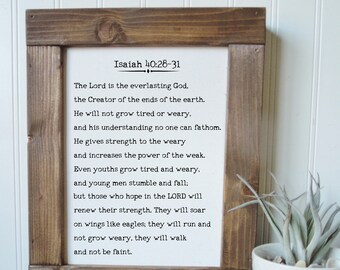 Isaiah 40:28-31
The Lord is the everlasting God,
the Creator of the ends of the earth.
He will not grow tired or weary,
and his understanding no one can fathom.
He gives strength to the weary
and increases the power of the weak.
Even youths grow tired and weary,
and young men stumble and fall;
but those who hope in the LORD will
renew their strength. They will soar
on wings like eagles; they will run and
not grow weary, they will walk
and not be faint.